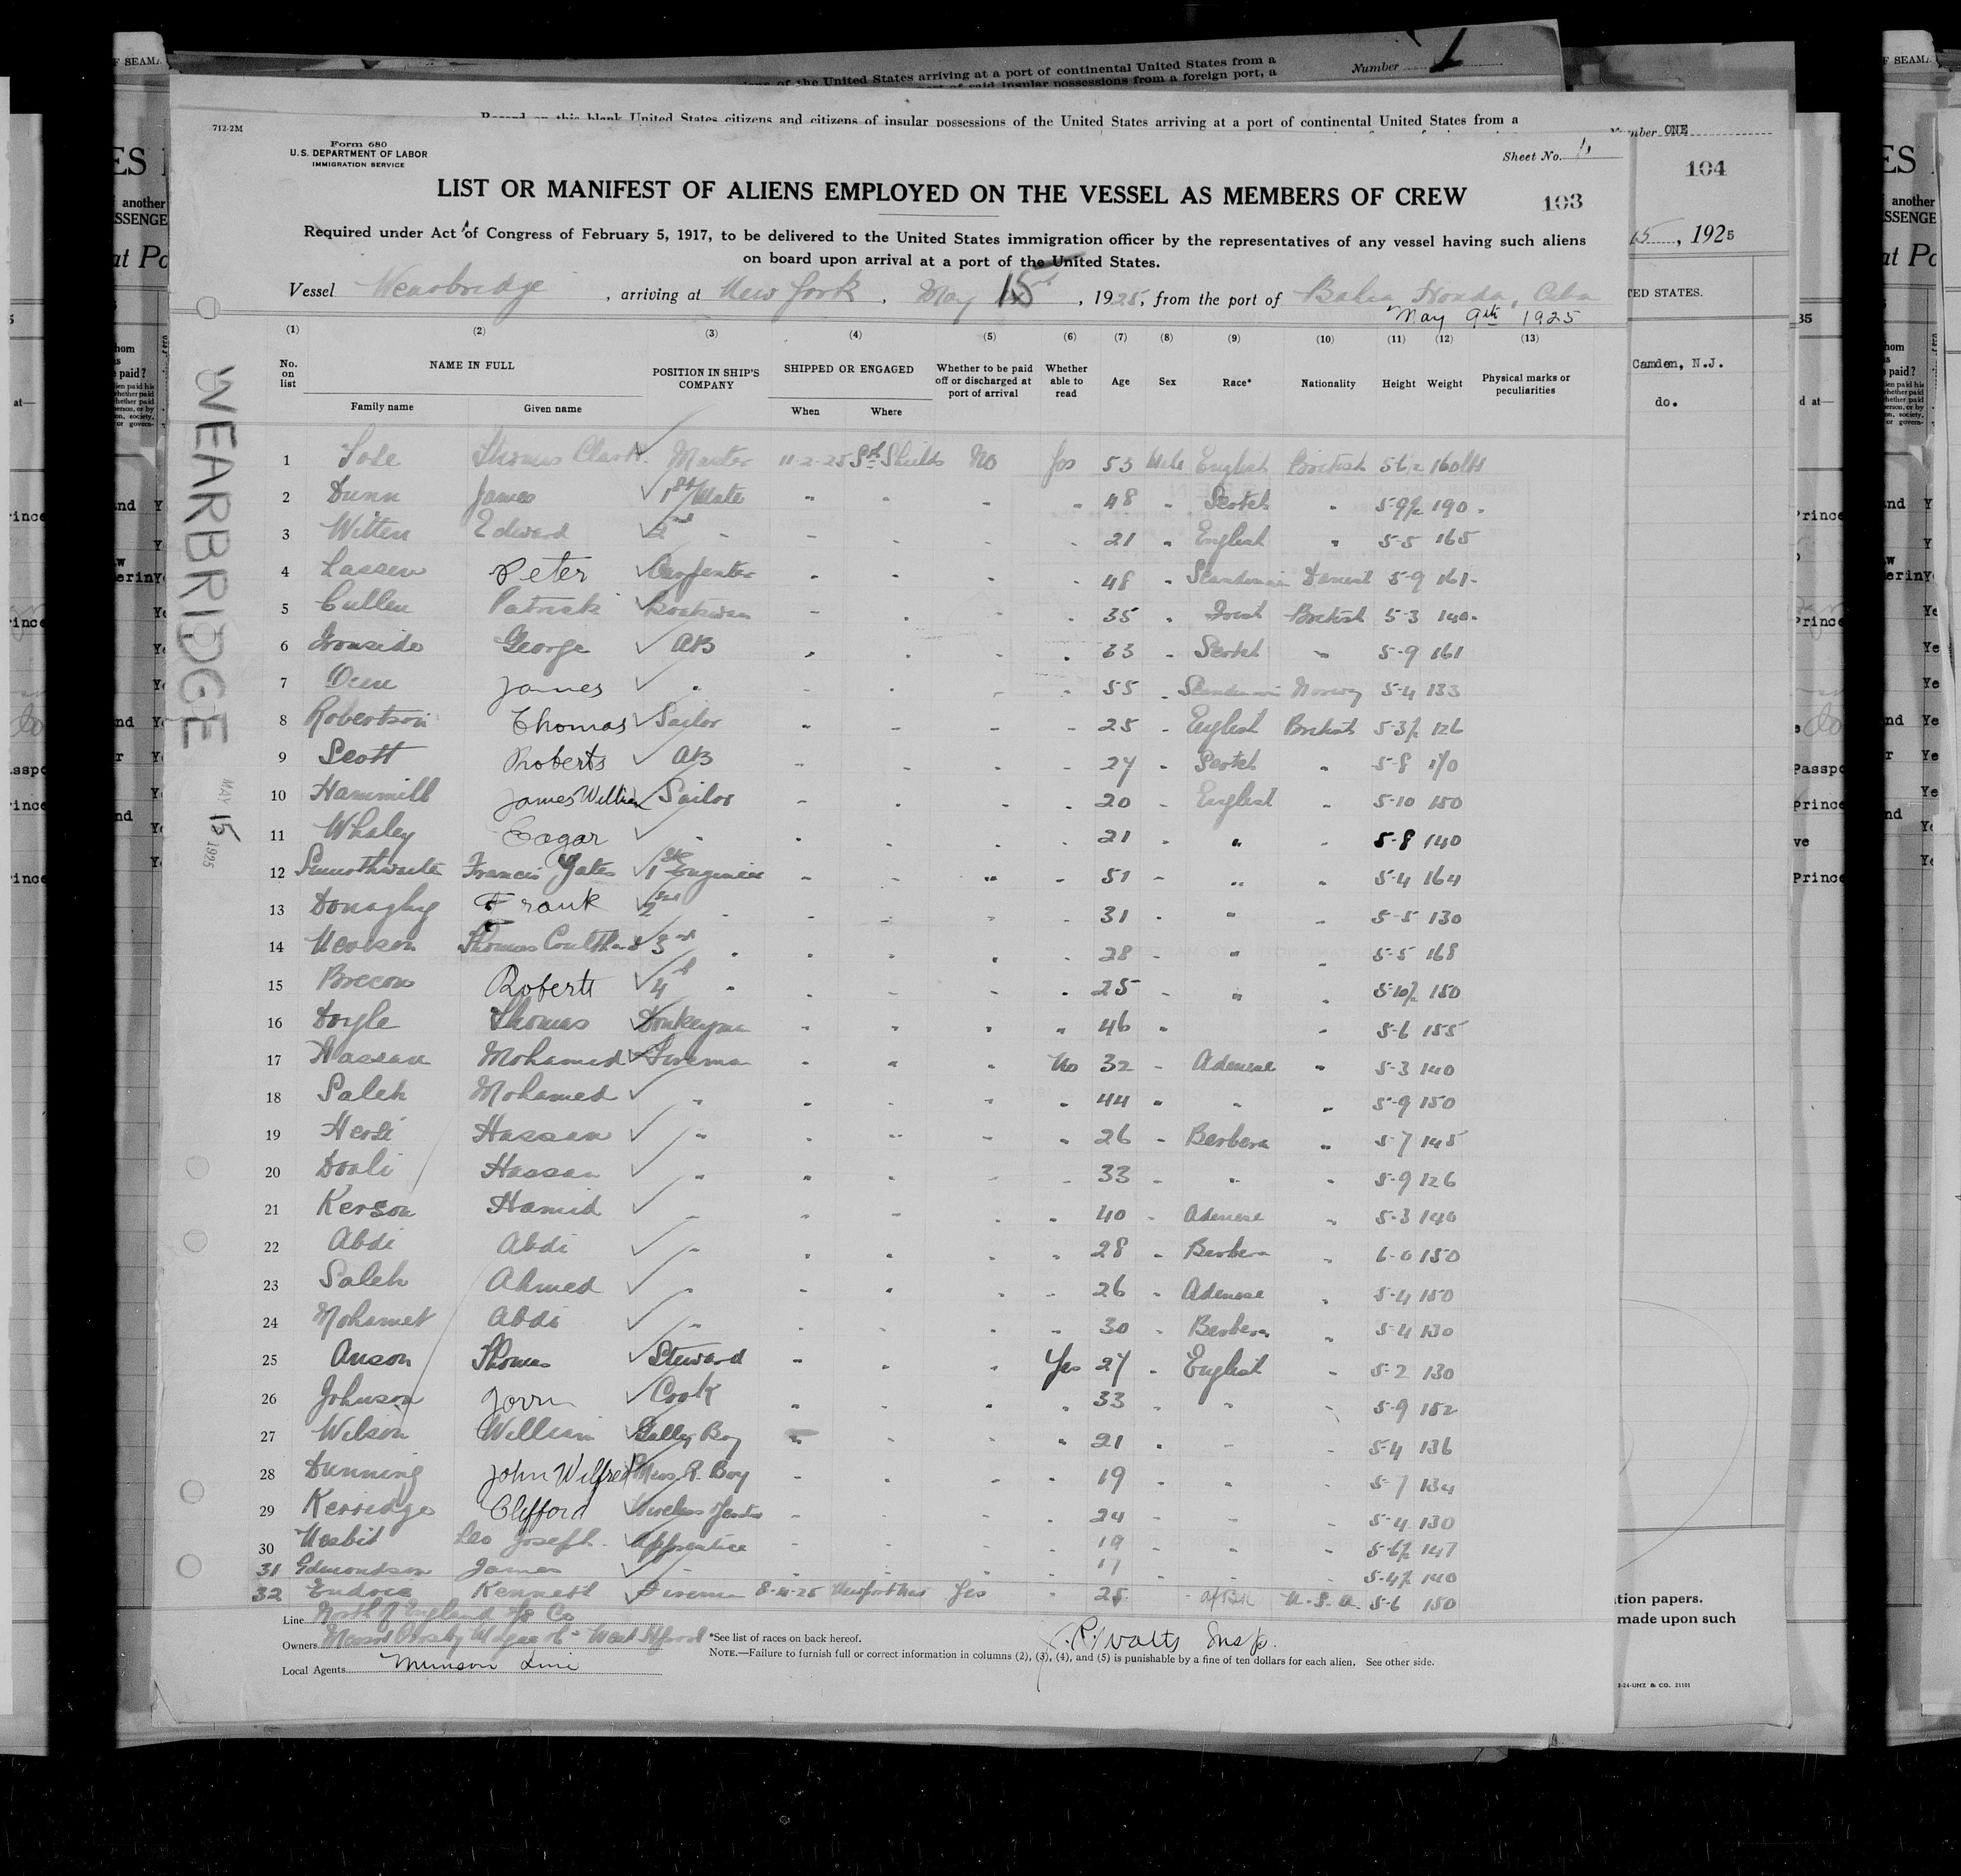 Number 1
of the United States arriving at a port of continental United States from a
of said insular possessions from a foreign port, a
Record on this blank United States citizens and citizens of insular possessions of the United States arriving at a port of continental United States from a
Number ONE
104
, 1925
712-2M
Form 680
U.S. DEPARTMENT OF LABOR
IMMIGRATION SERVICE
Sheet No.
LIST OR MANIFEST OF ALIENS EMPLOYED ON THE VESSEL AS MEMBERS OF CREW
103
Required under Act of Congress of February 5, 1917, to be delivered to the United States immigration officer by the representatives of any vessel having such aliens
on board upon arrival at a port of the United States.
Vessel Wearbridge, arriving at New York, May 15, 1925, from the port of Bahia Honda, Cuba
May 9th 1925
(1) (2) (3) (4) (5) (6) (7) (8) (9) (10) (11) (12) (13)
No. on list NAME IN FULL POSITION IN SHIP'S COMPANY SHIPPED OR ENGAGED Whether to be paid off or discharged at port of arrival Whether able to read Age Sex Race* Nationality Height Weight Physical marks or peculiarities
Family name Given name When Where
1 Thomas Clark Master 11-2-25 Sth Shields No Yes 53 Male English British 160 lbs
2 Dunn James 1st Mate " " " " 48 " Scotch " 5-9½ 190
3 Witten Edward 2nd " " " " " 21 " English " 5-5 165
4 Lassen Peter Carpenter " " " " 48 " 5-9 161
5 Cullen Patrick Boatswain " " " " 35 " Irish British 5-3 140
6 Ironside George AB " " " " 33 " Scotch " 5-9 161
7 James " " " " " 55 " Norway 5-4 133
8 Robertson Thomas Sailor " " " " 25 " English British 5-3½ 126
9 Scott Roberts AB " " " " 27 " Scotch " 5-8
10 Hammill James William Sailor " " " " 20 " English " 5-10 150
11 Whaley Edgar " " " " " 21 " " " 5-8 140
12 Francis Yates 1st Engineer " " " " 51 " " " 5-4 164
13 Donaghy Frank 2nd " " " " " 31 " " " 5-5 130
14 Thomas 3rd " " " " " 28 " " " 5-5 168
15 Brecon Roberts 4th " " " " " 25 " " " 5-10½ 150
16 Doyle Thomas Donkeyman " " " " 46 " " 5-6 155
17 Hassan Mohamed Fireman " " " No 32 " Adenese " 5-3 140
18 Saleh Mohamed " " " " " 44 " " " 5-9 150
19 Hersi Hassan " " " " " 26 " Berbera " 5-7 145
20 Hassan " " " " " 33 " " " 5-9 126
21 Kerson Hamid " " " " " 40 " Adenese " 5-3 140
22 Abdi Abdi " " " " " 28 " Berbera " 6-0 150
23 Saleh Ahmed " " " " " 26 " Adenese " 5-4 150
24 Mohamet Abdi " " " " " 30 " Berbera " 5-4 130
25 Anson Thomas Steward " " " Yes 27 " English " 5-2 130
26 Johnson John Cook " " " " 33 " " " 5-9 152
27 Wilson William Galley Boy " " " " 21 " " " 5-4 136
28 Dunning John Wilfred Mess R. Boy " " " " 19 " " " 5-7 134
29 Kerridge Clifford Wireless " " " " 24 " " " 5-4 130
30 Nesbit Leo Joseph Apprentice " " " " 19 " " " 5-6½ 147
31 Edmondson James " " " " " 17 " 5-4½ 140
32 Kenneth Fireman Yes " 25 " U.S.A. 5-6 150
Line North of England SS Co
Owners
Local Agents Munson Line
*See list of races on back hereof.
NOTE.—Failure to furnish full or correct information in columns (2), (3), (4), and (5) is punishable by a fine of ten dollars for each alien. See other side.
Watts Insp.
WEARBRIDGE
MAY 15 1925
TED STATES.
Camden, N.J.
do.
tion papers.
made upon such